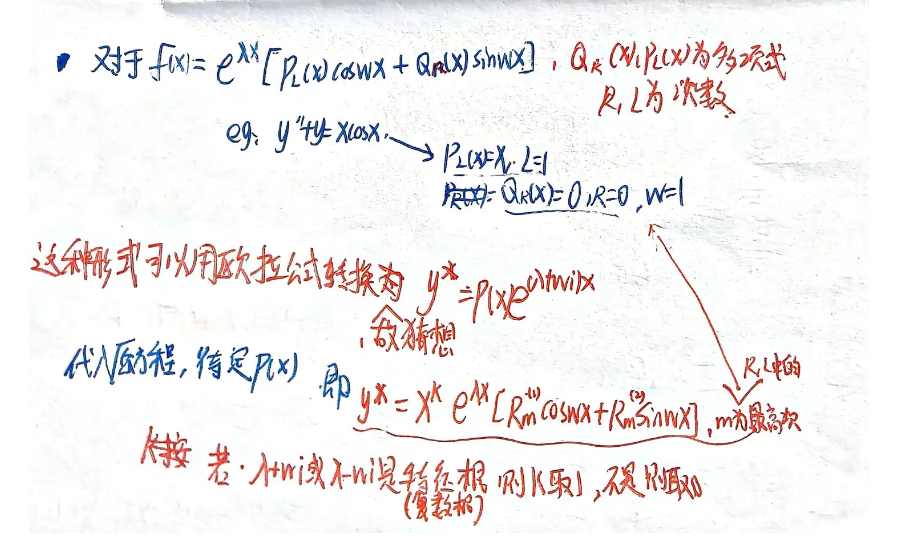 • 对于 f(x) = e^{λx} [P_L(x) coswx + Q_R(x) sinwx], Q_R(x), P_L(x)为多项式
R, L为次数
eg: y''+y=xcosx.
P_L(x)=x. L=1
Q_R(x)=0, R=0, w=1
这种形式可以用欧拉公式转换为 y*=P(x)e^{(λ+wi)x}
,故猜想
代入原方程,待定P(x)
R, L中的
即 y* = x^k e^{λx} [R_m^{(1)} coswx + R_m^{(2)} sinwx], m为最高次
k按 若·λ+wi或λ-wi是特征根 则k取1, 不是则取0
(复数根)